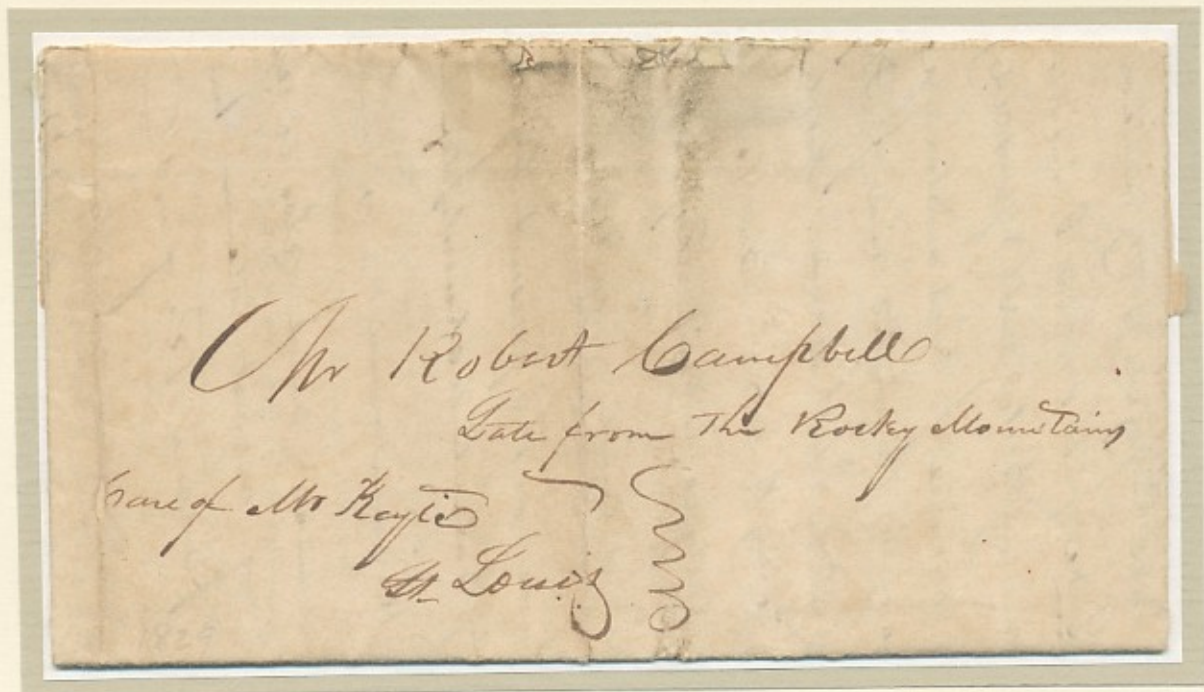 Mr Robert Campbell
Late from The Rocky Mountains
Care of Mr Keyte
St. Louis